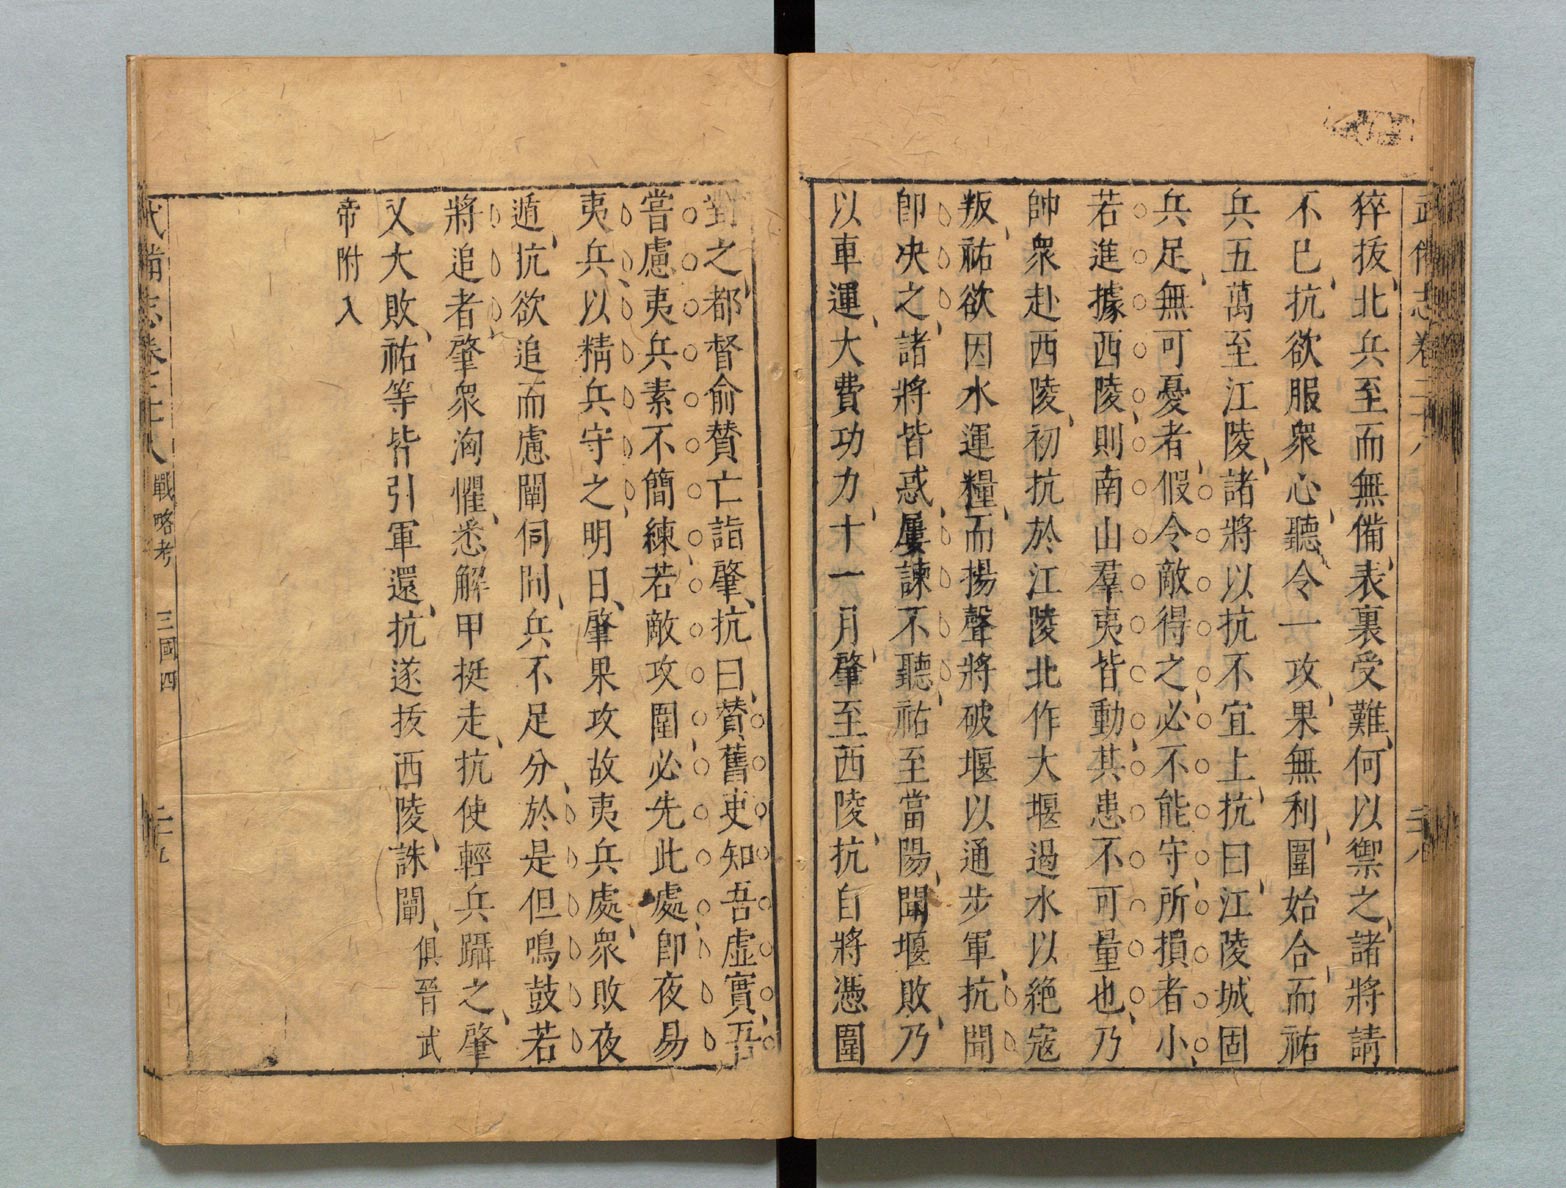 武備志卷二十八
猝拔北兵至而無備表裏受難何以禦之諸將請
不已抗欲服衆心聽令一攻果無利圍始合而祐
兵五萬至江陵諸將以抗不宜上抗曰江陵城固
兵足無可憂者假令敵得之必不能守所損者小
若進據西陵則南山羣夷皆動其患不可量也乃
帥衆赴西陵初抗於江陵北作大堰遏水以絶寇
叛祐欲因水運糧而揚聲將破堰以通步軍抗聞
卽决之諸將皆惑屢諫不聽祐至當陽聞堰敗乃
以車運大費功力十一月肇至西陵抗自將憑圍
對之都督俞贊亡詣肇抗曰贊舊吏知吾虛實吾
嘗慮夷兵素不簡練若敵攻圍必先此處卽夜易
夷兵以精兵守之明日肇果攻故夷兵處衆敗夜
遁抗欲追而慮闡伺間兵不足分於是但鳴鼓若
將追者肇衆洶懼悉解甲挺走抗使輕兵躡之肇
又大敗祐等皆引軍還抗遂拔西陵誅闡俱晉武
帝附入
武備志卷二十八 戰略考 三國四 二十五